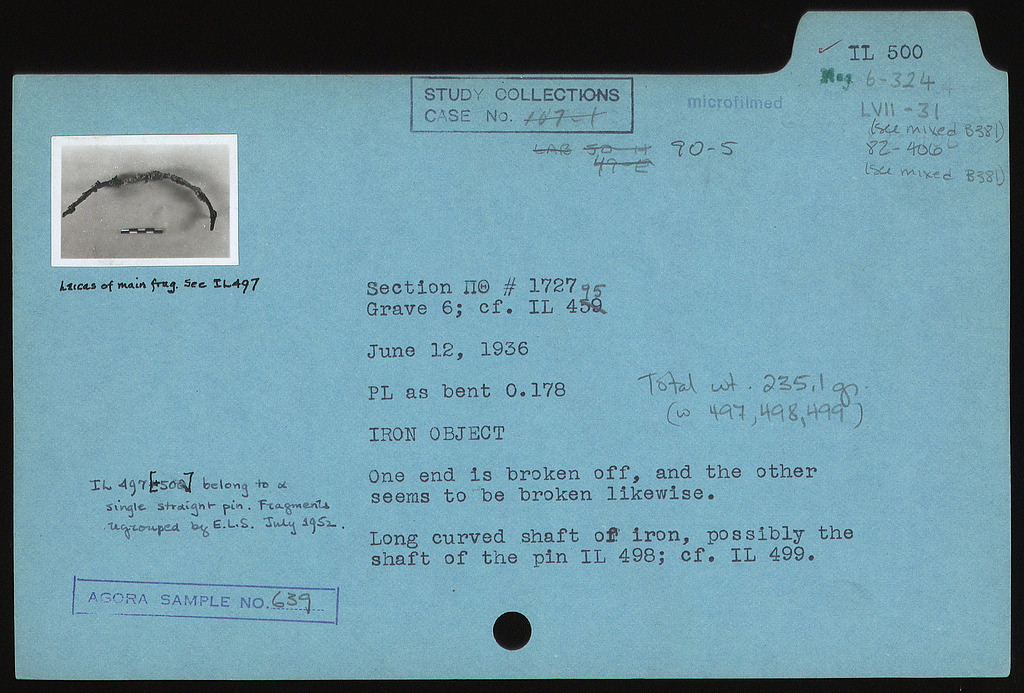 ✓ IL 500
Neg 6-324
LVII-31
(see mixed B381)
82-406
(see mixed B381)
STUDY COLLECTIONS
CASE No. 107-1
microfilmed
LAB 50 H 90-5
49-E
Lucas of main frag. See IL497
Section ΠΘ # 1727
Grave 6; cf. IL 459 95
June 12, 1936
PL as bent 0.178
Total wt. 235.1 gr.
(w 497, 498, 499)
IRON OBJECT
One end is broken off, and the other
seems to be broken likewise.
Long curved shaft of iron, possibly the
shaft of the pin IL 498; cf. IL 499.
IL 497[+500] belong to a
single straight pin. Fragments
regrouped by E.L.S. July 1952.
AGORA SAMPLE NO. 639